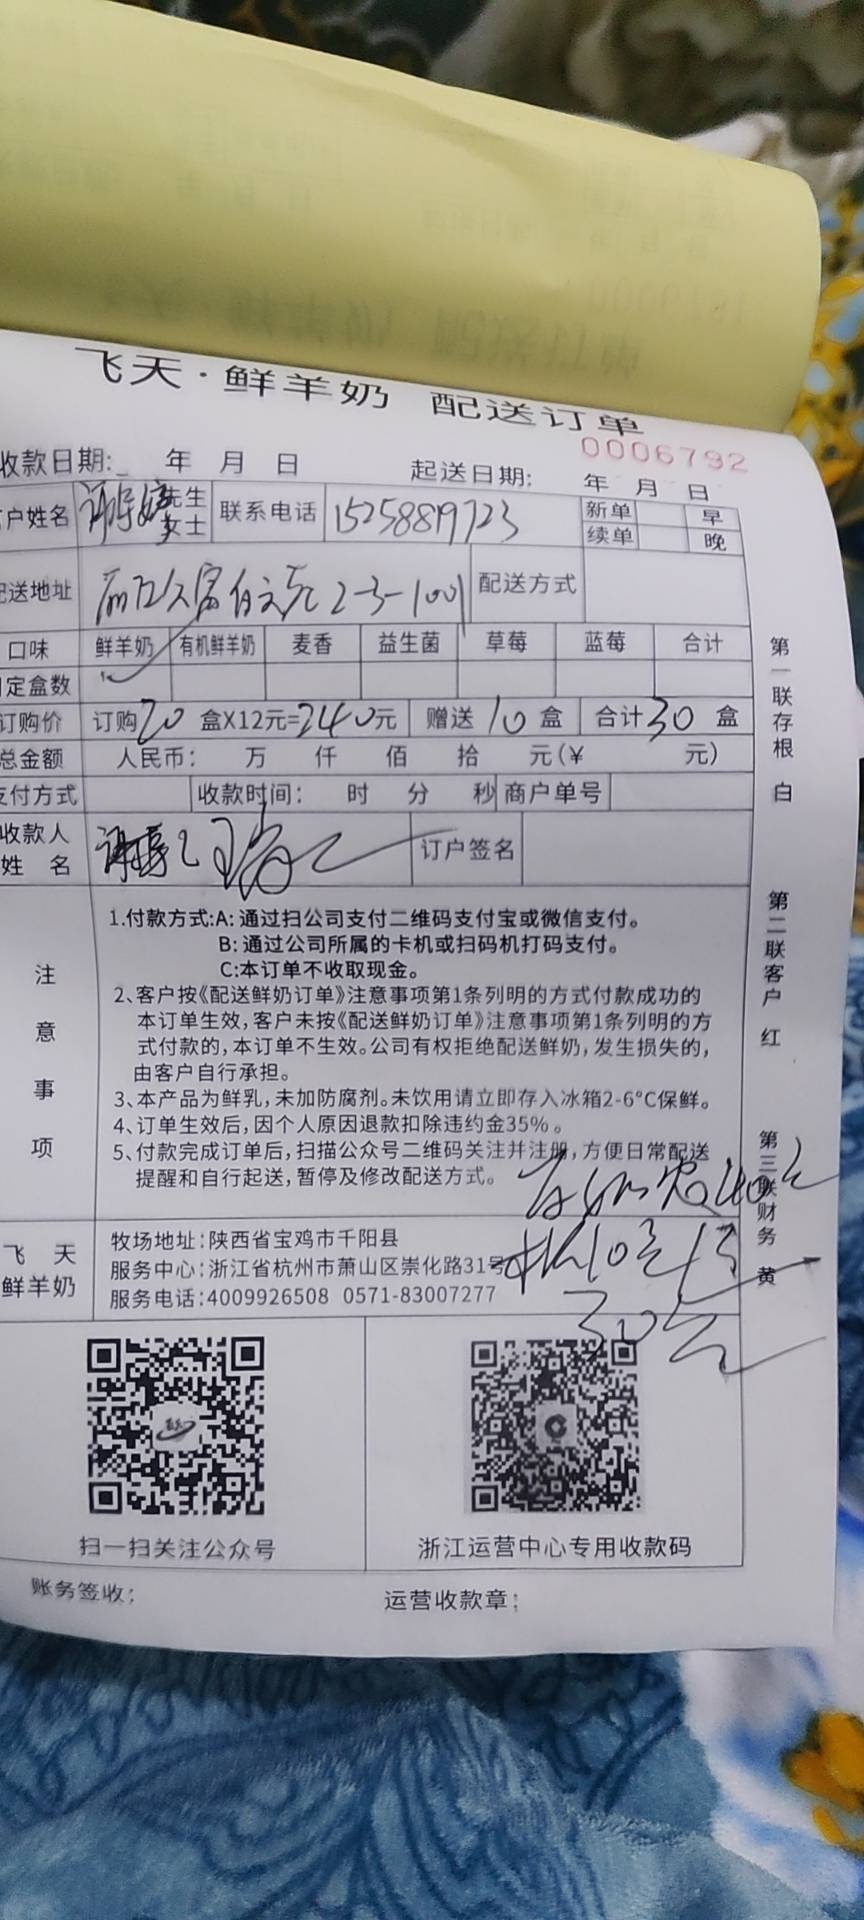 飞天·鲜羊奶 配送订单
0006792
收款日期: 年 月 日 起送日期: 年 月 日
户姓名 先生 女士 联系电话 15258819723 新单 早
续单 晚
送地址 2-3-1001 配送方式
口味 鲜羊奶 有机鲜羊奶 麦香 益生菌 草莓 蓝莓 合计
定盒数
订购价 订购20盒X12元=240元 赠送10盒 合计30盒
总金额 人民币: 万 仟 佰 拾 元(¥ 元)
支付方式 收款时间: 时 分 秒 商户单号
收款人
姓 名 订户签名
注意事项
1.付款方式:A: 通过扫公司支付二维码支付宝或微信支付。
B: 通过公司所属的卡机或扫码机打码支付。
C:本订单不收取现金。
2、客户按《配送鲜奶订单》注意事项第1条列明的方式付款成功的
本订单生效,客户未按《配送鲜奶订单》注意事项第1条列明的方
式付款的,本订单不生效。公司有权拒绝配送鲜奶,发生损失的,
由客户自行承担。
3、本产品为鲜乳,未加防腐剂。未饮用请立即存入冰箱2-6°C保鲜。
4、订单生效后,因个人原因退款扣除违约金35%。
5、付款完成订单后,扫描公众号二维码关注并注册,方便日常配送
提醒和自行起送,暂停及修改配送方式。
飞 天
鲜羊奶
牧场地址:陕西省宝鸡市千阳县
服务中心:浙江省杭州市萧山区崇化路31号
服务电话:4009926508 0571-83007277
30元
扫一扫关注公众号
浙江运营中心专用收款码
账务签收:
运营收款章:
第一联存根 白
第二联客户 红
第三联财务 黄